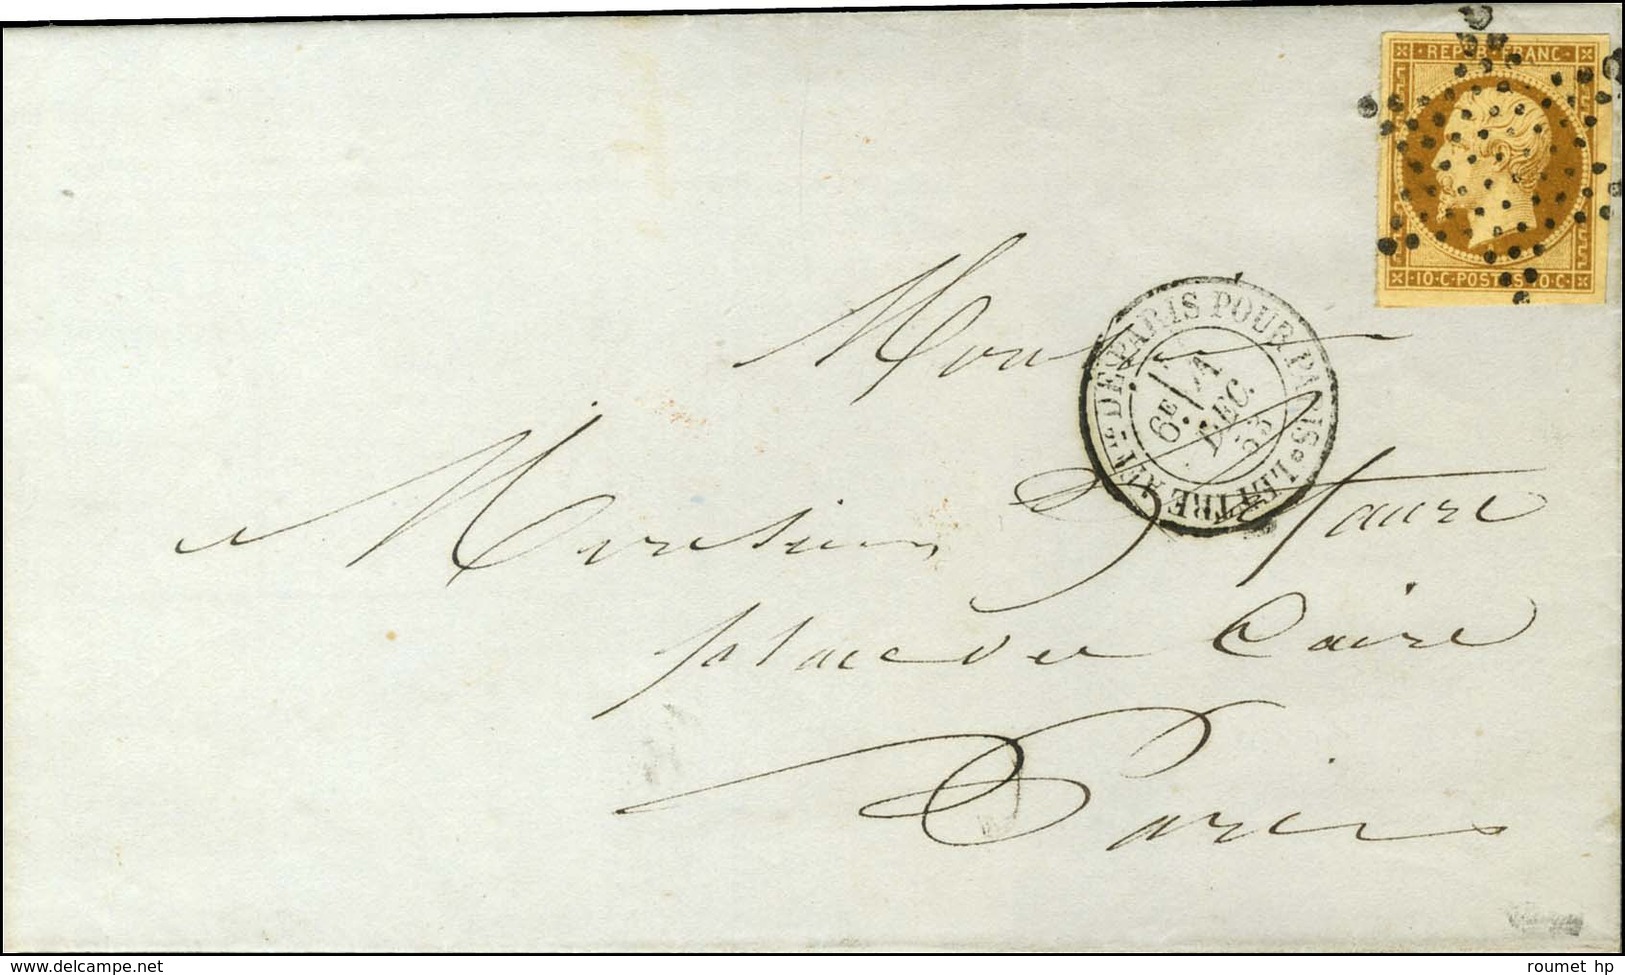 REPUB·FRANC·
·10·C·POSTES·10·C·
DE PARIS POUR PARIS
6E
DEC.
53
Monsieur
Faure
place du Caire
Paris
www.delcampe.net
roumet hp